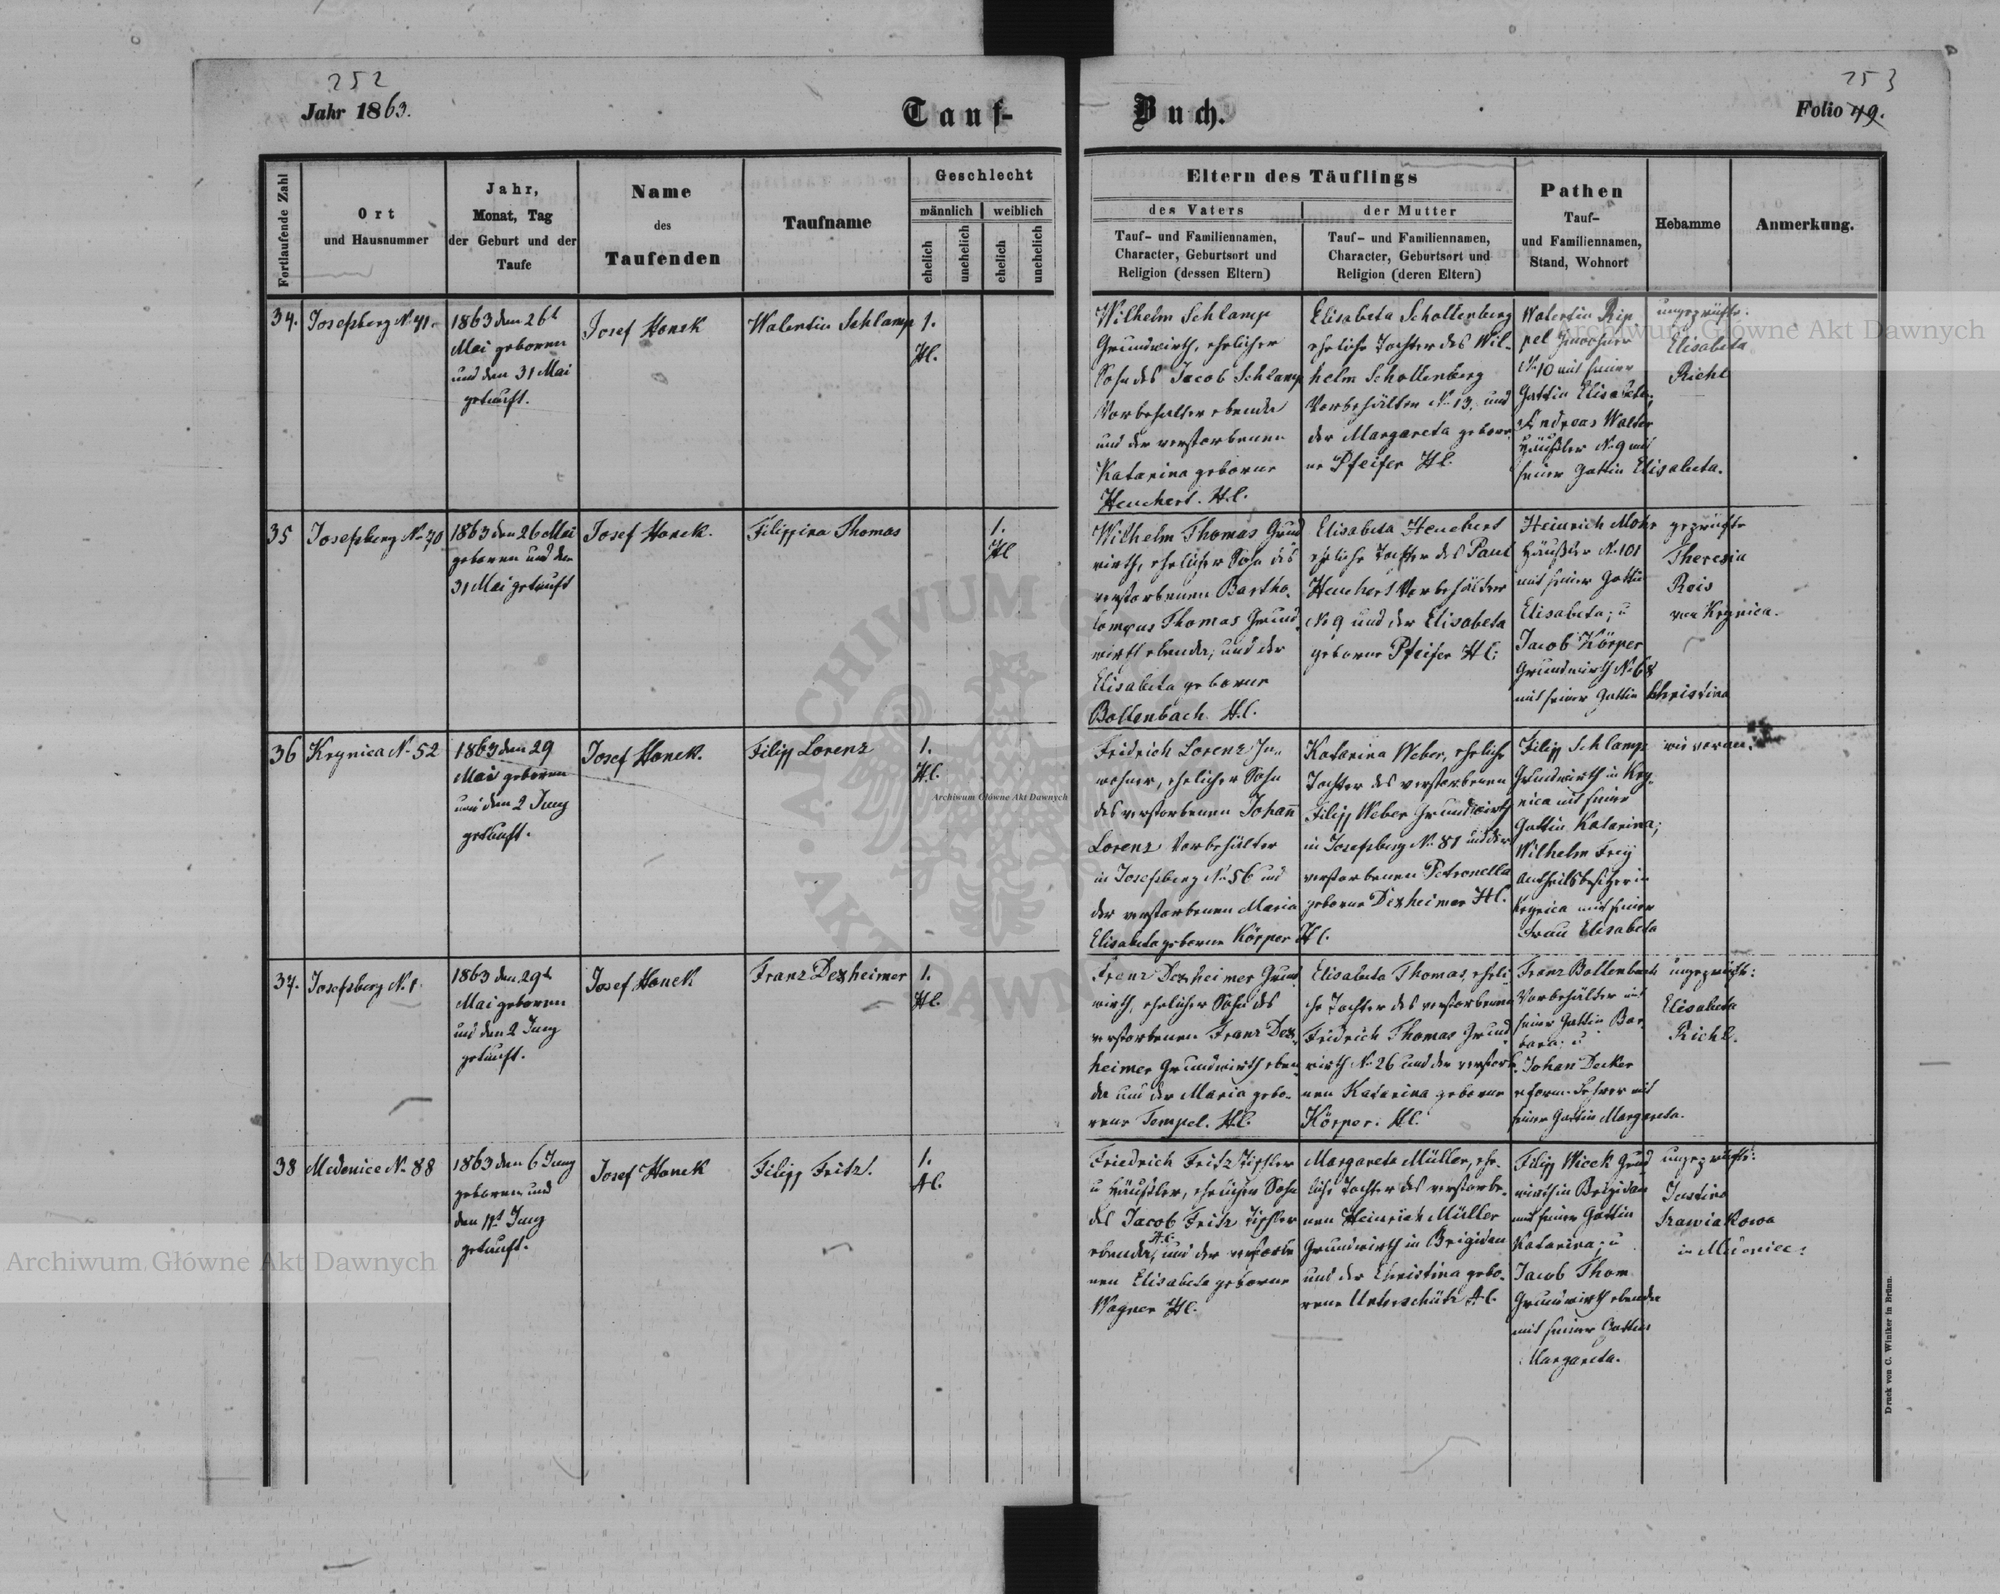 252
253
Jahr 1863.
Tauf-
Buch.
Folio 49.
Fortlaufende Zahl
Ort
und Hausnummer
Jahr,
Monat, Tag
der Geburt und der
Taufe
Name
des
Taufenden
Taufname
Geschlecht
männlich
weiblich
ehelich
unehelich
ehelich
unehelich
Eltern des Täuflings
des Vaters
Tauf- und Familiennamen,
Character, Geburtsort und
Religion (dessen Eltern)
der Mutter
Tauf- und Familiennamen,
Character, Geburtsort und
Religion (deren Eltern)
Pathen
Tauf-
und Familiennamen,
Stand, Wohnort
Hebamme
Anmerkung.
34.
Josefsberg N. 41.
1863 den 26t
Mai geboren
und den 31 Mai
getauft.
Josef Honek
Walentin Schlamp
1.
H.C.
Wilhelm Schlamp
Grundwirth, ehelicher
Sohn des Jacob Schlamp
Vorbehalter ebenda
und der verstorbenen
Katarina geborne
Heuchert. H.C.
Elisabeta Schollenberg
eheliche Tochter des Wil-
helm Schollenberg
Vorbehälter N. 13. und
der Margareta gebor-
ne Pfeifer H.C.
Walentin Rip
pel Inwohner
N. 10 mit seiner
Gattin Elisabeta;
Andreas Walter
Häusler N. 9 mit
seiner Gattin Elisabeta.
ungeprüfte:
Elisabeta
Richl
35
Josefsberg N. 70
1863 den 26 Mai
geboren und den
31 Mai getauft
Josef Honek.
Filippina Thomas
1.
H.C.
Wilhelm Thomas Grund
wirth, ehelicher Sohn des
verstorbenen Bartho-
lomeus Thomas Grund-
wirth ebenda, und der
Elisabeta geborne
Bollenbach. H.C.
Elisabeta Heuchert
eheliche Tochter des Paul
Heuchert Vorbehälter
N. 9 und der Elisabeta
geborne Pfeifer H.C.
Heinrich Mohr
Häusler N. 101
mit seiner Gattin
Elisabeta; u
Jacob Körper
Grundwirth N. 68
mit seiner Gattin Christina
geprüfte
Theresia
Rois
von Krynica.
36
Krynica N. 52
1863 den 29
Mai geboren
und den 2 Juny
getauft.
Josef Honek.
Filipp Lorenz
1.
H.C.
Fridrich Lorenz In-
wohner, ehelicher Sohn
des verstorbenen Johann
Lorenz Vorbehälter
in Josefsberg N. 56 und
der verstorbenen Maria
Elisabeta geborne Körper H.C.
Katarina Weber, eheliche
Tochter des verstorbenen
Filipp Weber Grundwirth
in Josefsberg N. 81 und der
verstorbenen Petronella
geborne Dexheimer H.C.
Filipp Schlamp
Grundwirth in Kry-
nica mit seiner
Gattin Katarina;
Wilhelm Frey
Antheilsbesitzer in
Krynica mit seiner
Frau Elisabeta
wie voran.
37.
Josefsberg N. 1.
1863 den 29t
Mai geboren
und den 2 Juny
getauft.
Josef Honek
Franz Dexheimer
1.
H.C.
Franz Dexheimer Grund
wirth, ehelicher Sohn des
verstorbenen Franz Dex-
heimer Grundwirth eben-
da und der Maria gebo-
rene Tempel. H.C.
Elisabeta Thomas, eheli-
che Tochter des verstorbenen
Fridrich Thomas Grund
wirth N. 26 und der verstorb-
nen Katarina geborne
Körper. H.C.
Franz Bollenbach
Vorbehälter mit
seiner Gattin Bar-
bara; u
Johan Decker
reform. Lehrer mit
seiner Gattin Margareta.
ungeprüfte:
Elisabeta
Richl.
38
Medenice N. 88
1863 den 6 Juny
geboren und
den 11t Juny
getauft.
Josef Honek
Filipp Fritz.
1.
A.C.
Friedrich Fritz Tischler
u Häusler, ehelicher Sohn
des Jacob Fritz Tischler
ebenda, A.C. und der verstorbe
nen Elisabeta geborne
Wagner H.C.
Margareta Müller, ehe-
liche Tochter des verstorbe-
nen Heinrich Müller
Grundwirth in Brigidau
und der Christina gebo-
rene Unterschütz A.C.
Filipp Wicek Grund
wirth in Brigidau
mit seiner Gattin
Katarina; u
Jacob Thom
Grundwirth ebenda
mit seiner Gattin
Margareta.
ungeprüfte:
Justina
Szawiakowa
in Medenice:
Druck von C. Winiker in Brünn.
Archiwum Główne Akt Dawnych
Archiwum Główne Akt Dawnych
Archiwum Główne Akt Dawnych